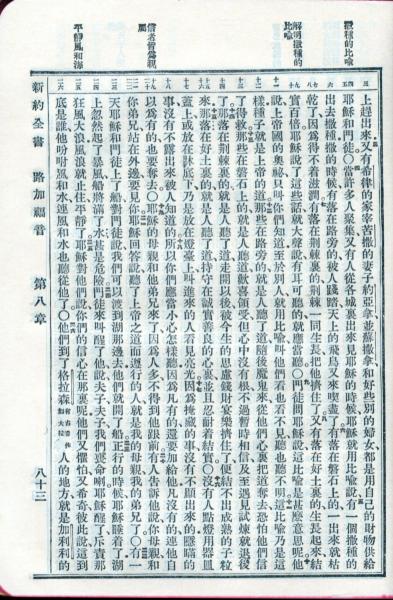 撒種的比喻
解明撒種的比喻
信者皆為親屬
平靜風和海
上趕出來又有希律的家宰苦撒的妻子約亞拿並蘇撒拿和好些別的婦女都是用自己的財物供給
耶穌和門徒〇當許多人聚集又有人從各城裏出來見耶穌的時候耶穌就用比喻說有一個撒種的
出去撒種撒的時候有落在路旁的被人踐踏天上的飛鳥又來喫盡又有落在磐石上的一出來就枯
乾了因為得不着滋潤有落在荊棘裏的荊棘一同生長把他擠住了又有落在好土裏的生長起來結
實百倍耶穌說了這些話就大聲說有耳可聽的就應當聽〇門徒問耶穌說這比喻是甚麼意思呢他
說上帝國的奧秘只叫你們知道至於別人就用比喻叫他們看也看不見聽也聽不明這比喻乃是這
樣種子就是上帝的道那些在路旁的就是人聽了道隨後魔鬼來從他們心裏把道奪去恐怕他們信
了得救那些在磐石上的就是人聽道歡喜領受但心中沒有根不過暫時相信及至遇見試煉就退後
了那落在荊棘裏的就是人聽了道走開以後被今生的思慮錢財宴樂擠住了便結不出成熟的子粒
來那落在好土裏的就是人聽了道持守在誠實善良的心裏並且忍耐着結實〇沒有人點燈用器皿
蓋上或放在牀底下乃是放在燈臺上叫進來的人看見亮光因為掩藏的事沒有不顯出來的隱瞞的
事沒有不露出來被人知道的所以你們應當小心怎樣聽因為凡有的還要加給他凡沒有的連他自
以為有的也要奪去〇耶穌的母親和他弟兄來了因為人多不得到他跟前有人告訴他說你母親和
你弟兄站在外邊要見你耶穌回答說聽了上帝之道而遵行的人就是我的母親我的弟兄了〇有一
天耶穌和門徒上了船對門徒說我們可以渡到湖那邊去他們就開了船正行的時候耶穌睡着了湖
上忽然起了暴風船將滿了水甚是危險門徒來叫醒了他說夫子夫子我們喪命喇耶穌醒了斥責那
狂風大浪風浪就止住平靜了耶穌對他們說你們的信心在那裏呢他們又懼怕又希奇彼此說這到
底是誰他吩咐風和水連風和水也聽從他了〇他們到了格拉森有古卷加大拉人的地方就是加利利的
新約全書 路加福音 第八章 八十三